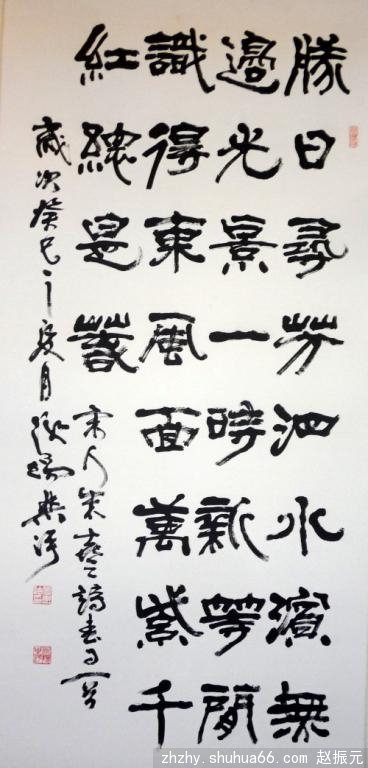 勝日尋芳泗水濱無
邊光景一時新等閒
識得東風面萬紫千
紅總是春
宋人朱熹之詩春日一首
歲次癸巳
月
zhzhy.shuhua66.com 赵振元